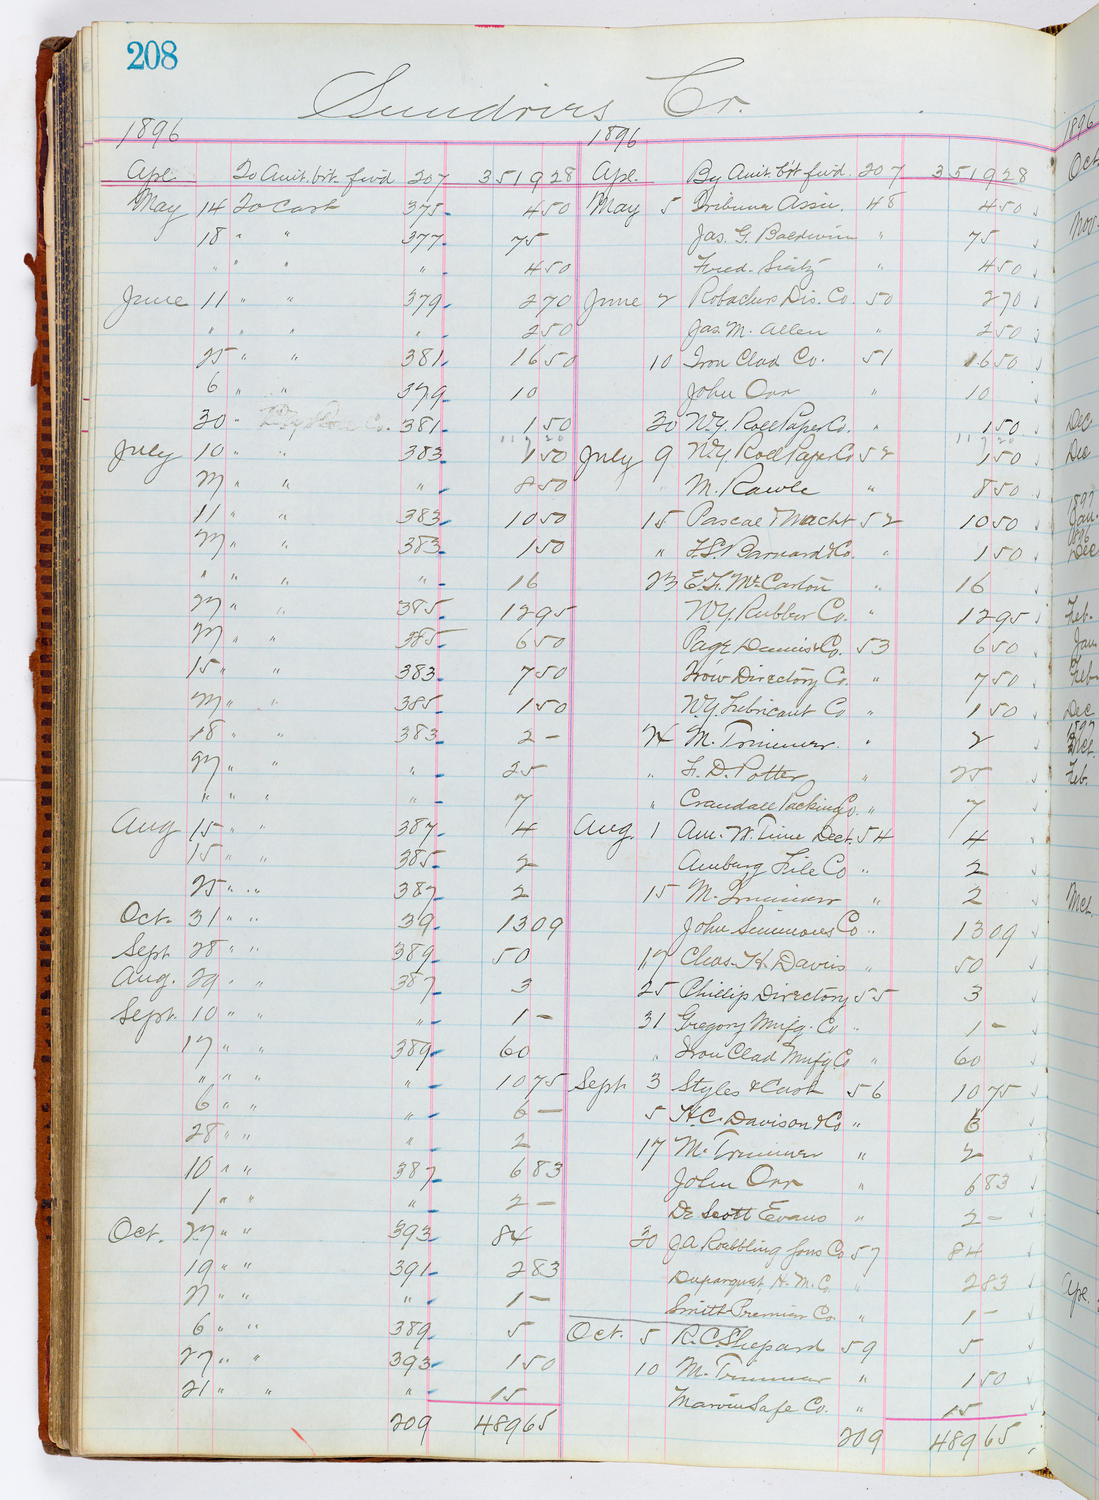 208
Sundries Cr.
1896 1896
Apl. To Amt. brt. fwd 207 3519 28 Apl. By Amt. b't fwd. 207 3519 28
May 14 To Cash 375 4 50 May 5 Tribune Assn. 48 4 50
18 " " 377 75 Jas. G. Baldwin " 75
" " " " 4 50 Fred. " 4 50
June 11 " " 379 2 70 June 2 Dis. Co. 50 2 70
" " " " 2 50 Jas. M. Allen " 2 50
25 " " 381 16 50 10 Iron Clad Co. 51 16 50
6 " " 379 10 John Orr " 10
30 " Co. 381 1 50 30 N.Y. Roll Paper Co. " 1 50
117 20 117 20
July 10 " " 383 1 50 July 9 N.Y. Roll Paper Co 52 1 50
27 " " " 8 50 M. Rawle " 8 50
11 " " 383 10 50 15 Pascal & Macht 52 10 50
27 " " 383 1 50 " F.S. Barnard & Co. " 1 50
" " " " 16 23 E.F. McCarton " 16
27 " " 385 12 95 N.Y. Rubber Co. " 12 95
27 " " 385 6 50 Page Dennis & Co. 53 6 50
15 " " 383 7 50 Trow Directory Co. " 7 50
27 " " 385 1 50 N.Y. Lubricant Co " 1 50
18 " " 383 2 — 24 M. Trimmer " 2
27 " " " 25 " F. D. Potter " 25
" " " " 7 " Crandall Packing Co. " 7
Aug 15 " " 387 4 Aug. 1 Am. W. Time Dect. 54 4
15 " " 385 2 File Co " 2
25 " " 387 2 15 M. Trimmer " 2
Oct. 31 " " 39 13 09 John Simmons Co " 13 09
Sept 28 " " 389 50 17 Chas. H. Davis " 50
Aug. 29 " " 387 3 25 Phillip Directory 55 3
Sept. 10 " " " 1 — 31 Gregory Mnfg. Co " 1 —
17 " " 389 60 " Iron Clad Mnfg Co " 60
" " " " 10 75 Sept 3 Styles & Cash 56 10 75
6 " " " 6 — 5 H.C. Davison & Co " 6
28 " " " 2 17 M. Trimmer " 2
10 " " 387 6 83 John Orr " 6 83
1 " " " 2 — Dr Scott Evans " 2 —
Oct. 27 " " 393 84 30 J.A. Roebbling Sons Co 57 84
19 " " 391 2 83 Duparquet, H. M. Co " 2 83
27 " " " 1 — Smith Premier Co. " 1 —
6 " " 389 5 Oct. 5 R.C. Shepard 59 5
27 " " 393 1 50 10 M. Trimmer " 1 50
21 " " " 15 Marvin Safe Co. " 15
209 4896 5 209 4896 5
1896
Oct
Nov.
Dec
Dec
1897
Jan.
1896
Dec
Feb.
Jan
Feb
Dec
1897
Oct.
Feb.
Mct.
Ape.